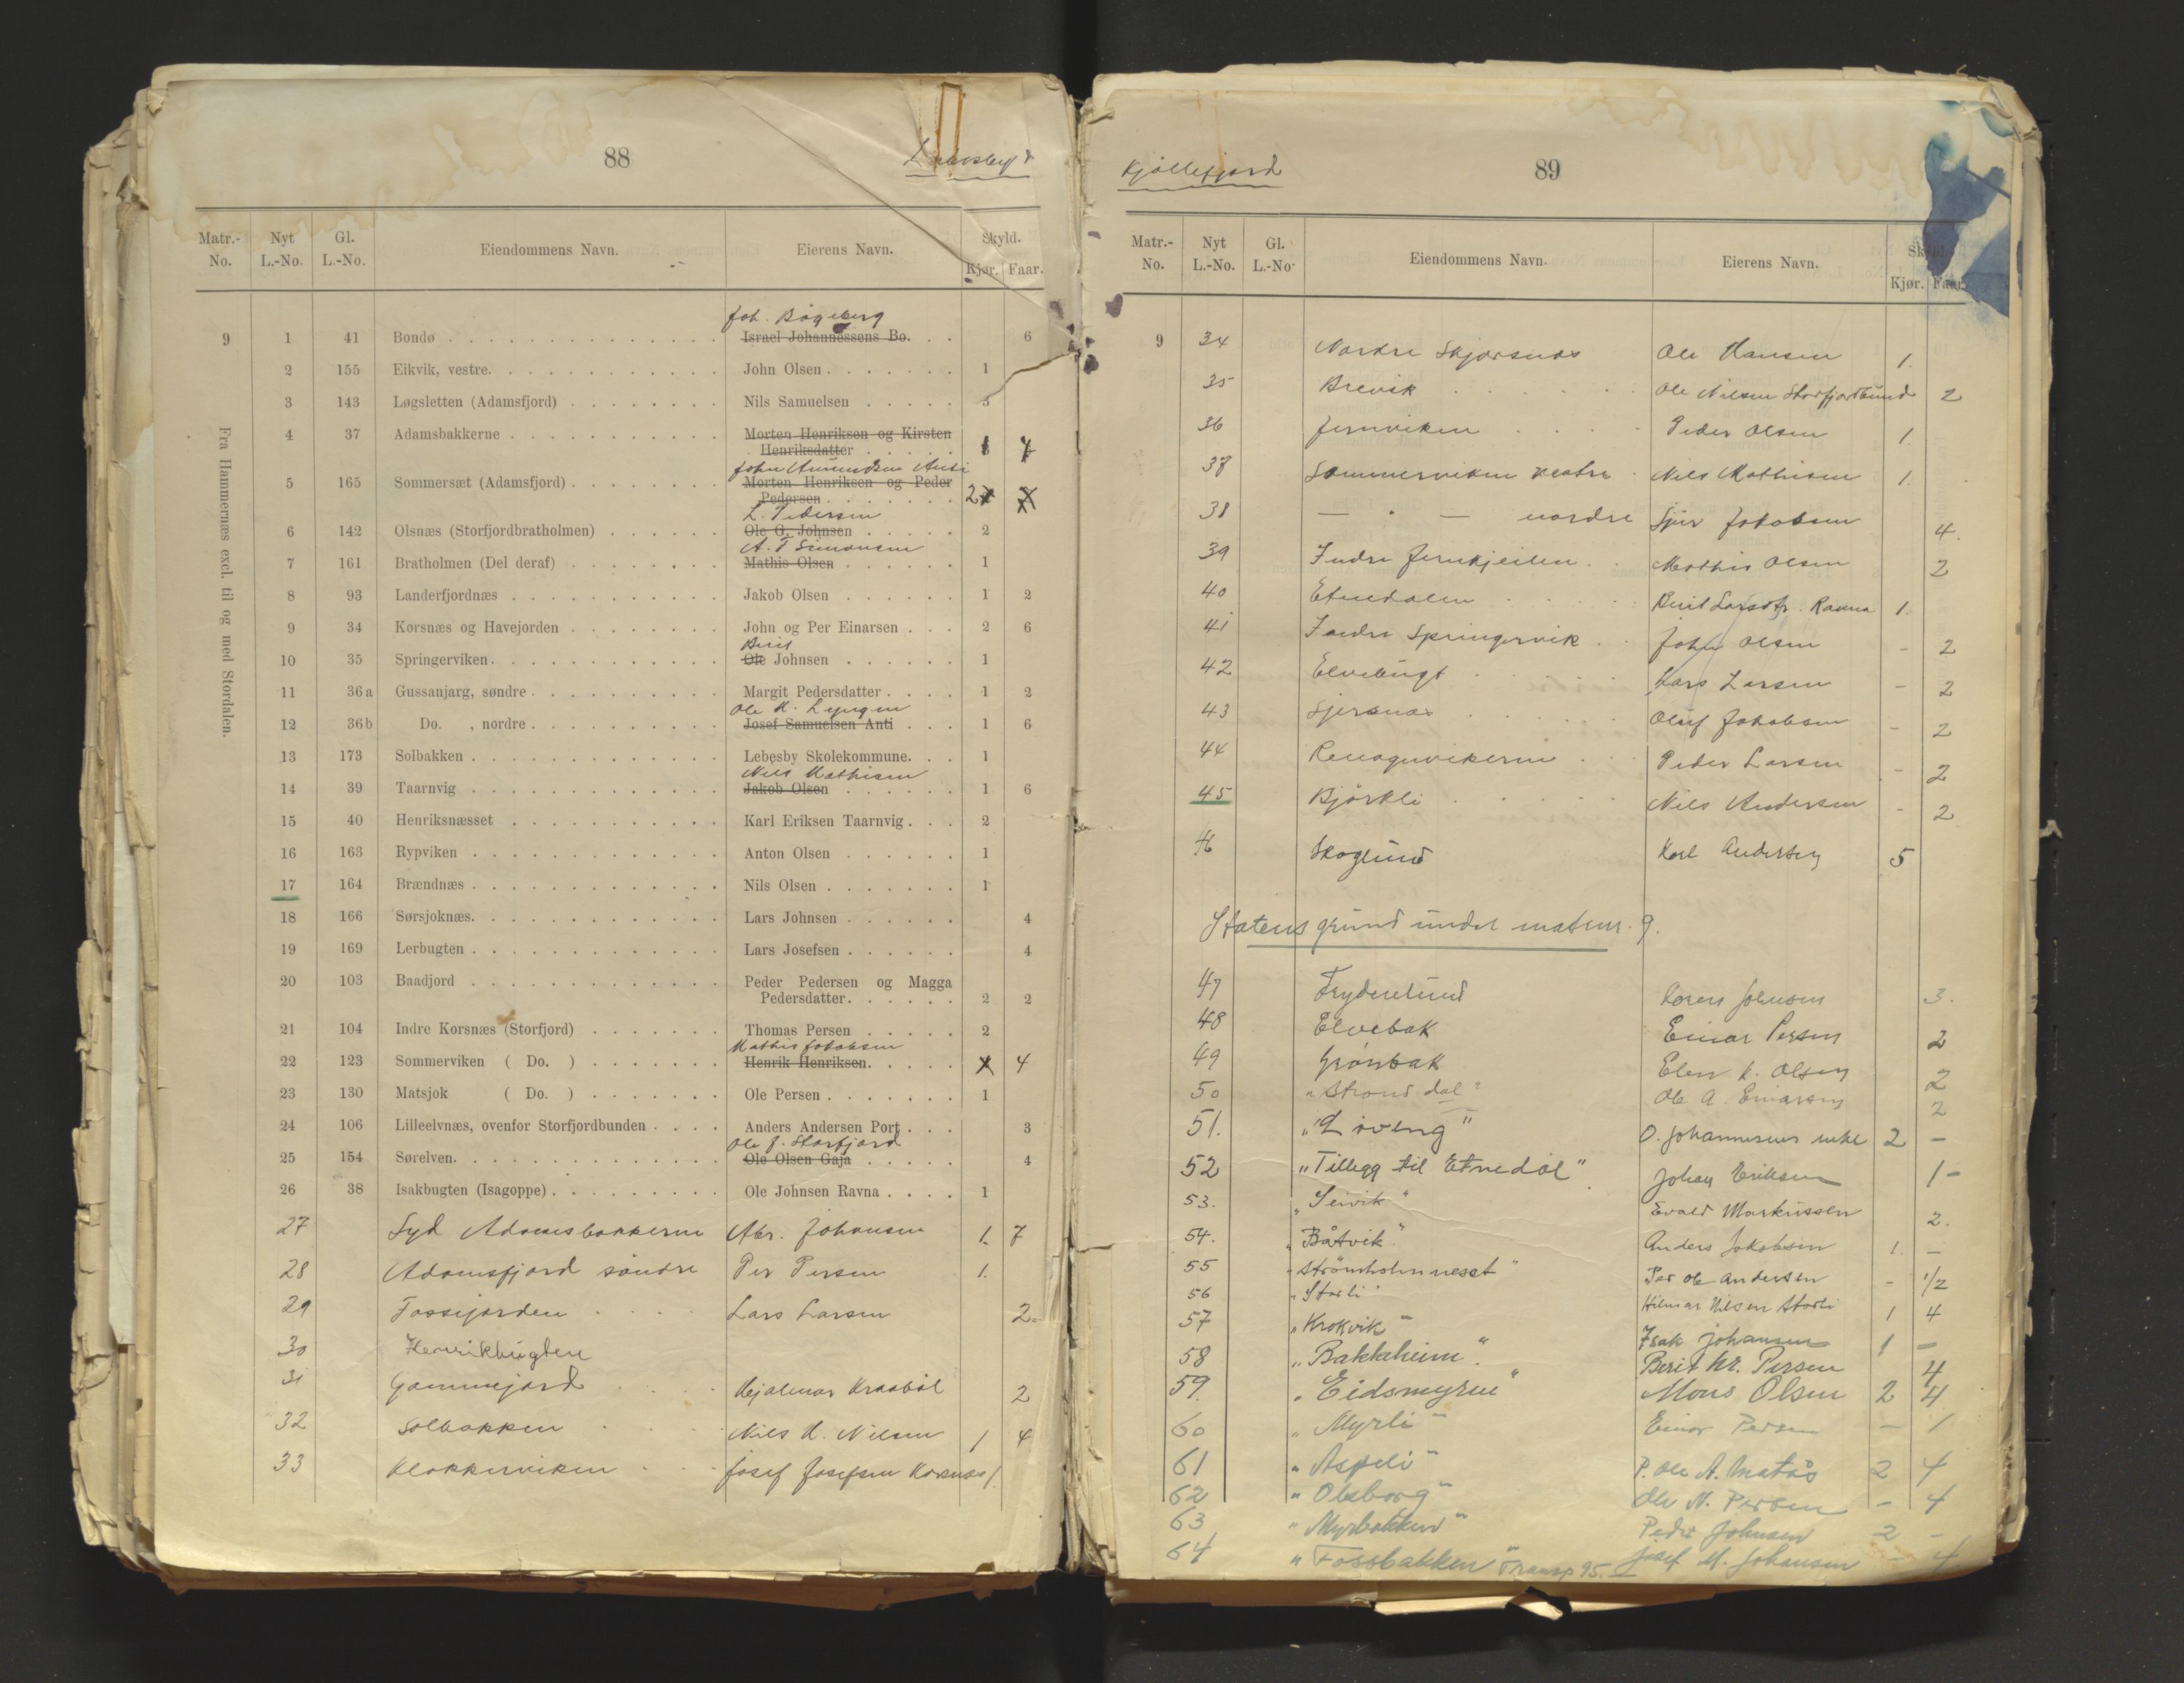 88
Lebesby &
Matr.-No. Nyt L.-No. Gl. L.-No. Eiendommens Navn. Eierens Navn. Skyld. Kjør. Faar.
Fra Hammernæs excl. til og med Stordalen.
Joh. Bogeberg
9 1 41 Bondø Israel Johannessens Bo. 6
2 155 Eikvik, vestre. John Olsen 1
3 143 Løgsletten (Adamsfjord) Nils Samuelsen 3
4 37 Adamsbakkerne Morten Henriksen og Kirsten
Henriksdatter
John Amundsen Anti
5 165 Sommersæt (Adamsfjord) Morten Henriksen og Peder
Pedersen 2
L. Pedersen
6 142 Olsnæs (Storfjordbratholmen) Ole G. Johnsen 2
A. T Simonsen
7 161 Bratholmen (Del deraf) Mathis Olsen 1
8 93 Landerfjordnæs Jakob Olsen 1 2
9 34 Korsnæs og Havejorden John og Per Einarsen 2 6
Berit
10 35 Springerviken. Ole Johnsen 1
11 36 a Gussanjarg, søndre Margit Pedersdatter 1 2
Ole H. Lyngen
12 36 b Do. , nordre Josef Samuelsen Anti 1 6
13 173 Solbakken Lebesby Skolekommune. 1
Nils Mathisen
14 39 Taarnvig Jakob Olsen 1 6
15 40 Henriksnæsset Karl Eriksen Taarnvig 2
16 163 Rypviken Anton Olsen 1
17 164 Brændnæs Nils Olsen 1
18 166 Sørsjoknæs. Lars Johnsen 4
19 169 Lerbugten Lars Josefsen 4
20 103 Baadjord Peder Pedersen og Magga
Pedersdatter. 2 2
21 104 Indre Korsnæs (Storfjord) Thomas Persen 2
Mathis Jakobsen
22 123 Sommerviken ( Do. ) Henrik Henriksen. 4
23 130 Matsjok ( Do. ) Ole Persen 1
24 106 Lilleelvnæs, ovenfor Storfjordbunden Anders Andersen Port 3
Ole J. Storfjord
25 154 Sørelven. Ole Olsen Gaja 4
26 38 Isakbugten (Isagoppe) Ole Johnsen Ravna 1
27 Syd Adamsbakkerne Abr. Johansen 1. 7
28 Adamsfjord søndre Per Persen 1.
29 Fossejorden Lars Larsen 2
30 Henrikbugten
31 Gammejord Hjalmar Kraabøl 2
32 Solbakken Nils N. Nilsen 1 4
33 Klokkerviken Josef Josefsen Korsnæs 1.
Kjøllefjord
89
Matr.-No. Nyt L.-No. Gl. L.-No. Eiendommens Navn. Eierens Navn. Skyld. Kjør. Faar.
9 34 Nordre Skjærsnæs Ole Hansen 1.
35 Brevik Ole Nilsen Storfjordbund 2
36 Jernviken Peder Olsen 1.
37 Sommerviken vestre Nils Mathisen 1.
38 — " — nordre Sjur Jakobsen 4.
39 Indre Jernkjeilen Mathis Olsen 2
40 Etnedalen Berit Larsdtr. Ravna 1.
41 Indre Springervik John Olsen - 2
42 Elvebugt Lars Larsen - 2
43 Sjersnæs Oluf Jakobsen - 2
44 Renognvikerne Peder Larsen - 2
45 Bjørkli Nils Andersen - 2
46 Skoglund Karl Andersen 5
Statens grund under matnr. 9.
47 Frydenlund Loren Johnsen 3.
48 Elvebak Einar Persen 2
49 Grønbak Elen K. Olsen 2
50 "Strand dal" Ole A. Einarsen 2
51. "Løveng" O. Johannesens enke 2 -
52 "Tillegg til Etnedal" Johan Eriksen 1 -
53. "Seivik" Evald Markussen 2.
54. "Båtvik" Anders Jakobsen 1. -
55 "Strømholmnesset" Per Ole Andersen - 1/2
56 "Storli" Hilmar Nilsen Storli 1 4
57 "Krokvik" Isak Johansen 1 -
58 "Bakkeheim" Berit Kr. Persen 4
59. "Eidsmyren" Mons Olsen 2 4
60 "Myrli" Einar Persen - 1
61 "Aspeli" P. Ole A. Matås 2 4
62 "Olsborg" Ole N. Persen - 4
63 "Myrbakken" Peder Johnsen 2 -
64 "Fossbakken" Transp 95. Josef M. Johansen - 4